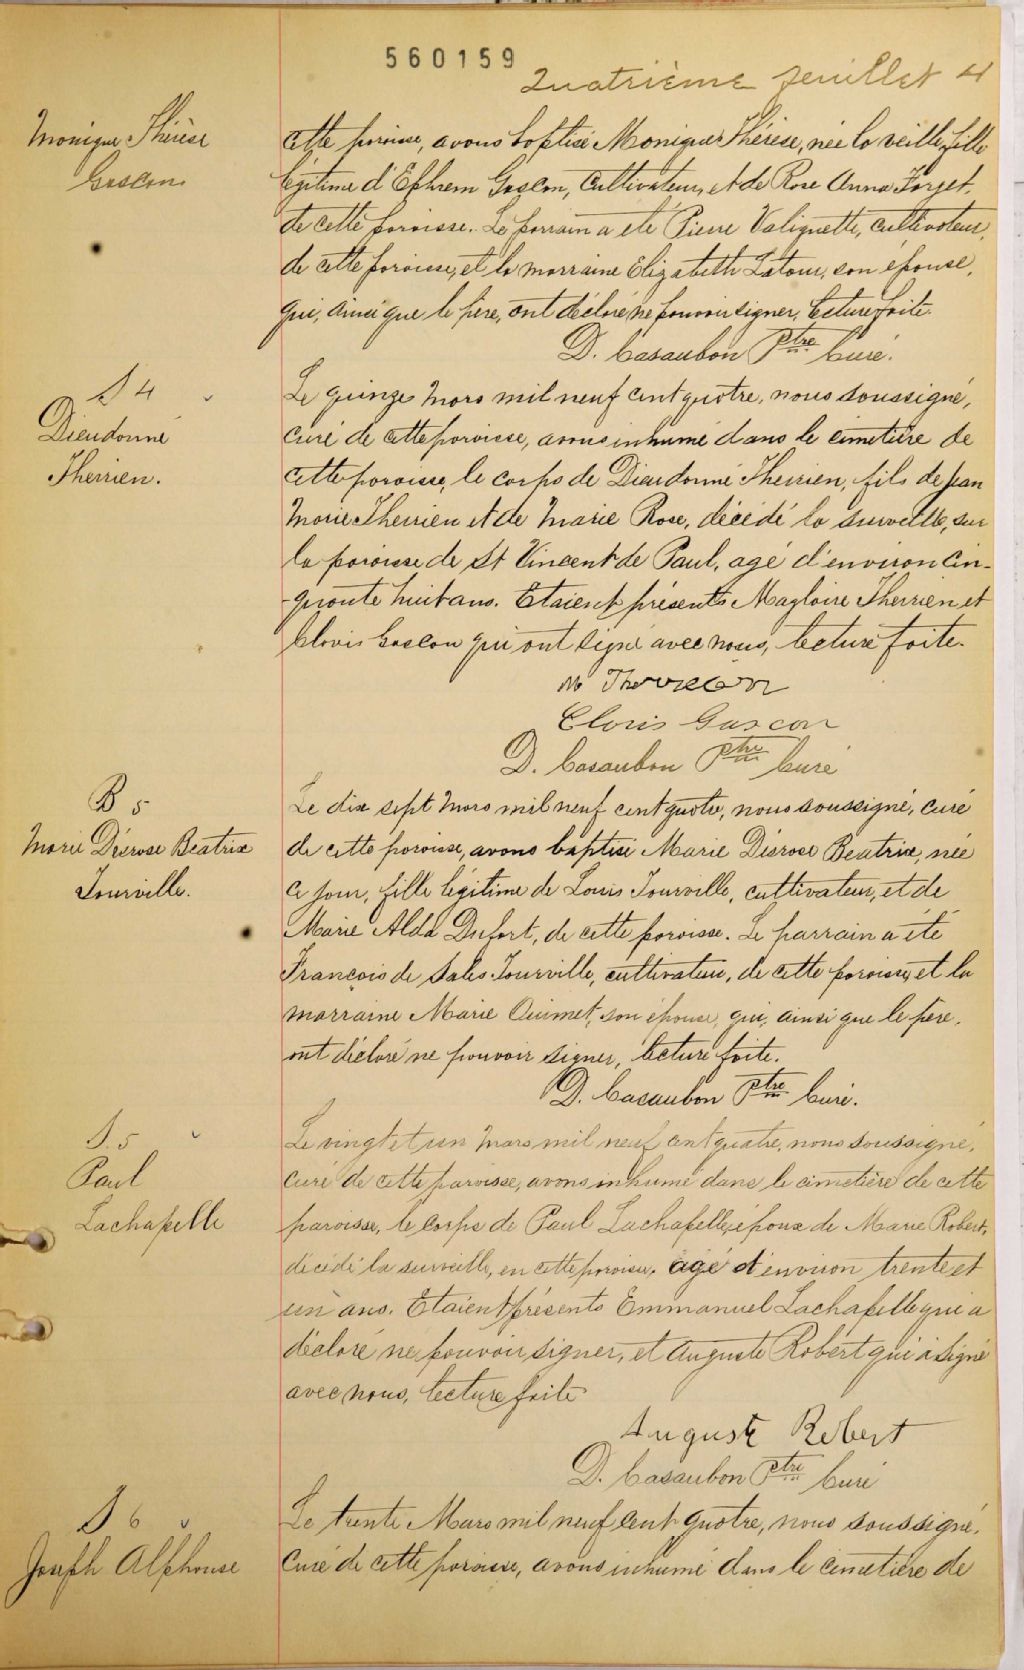 560159
Quatrième feuillet 4
Monique Thérèse
Gascon
cette paroisse, avons baptisé Monique Thérèse, née la veille, fille
légitime d'Ephrem Gascon, cultivateur, et de Rose Anna Forget,
de cette paroisse. Le parrain a été Pierre Valiquette, cultivateur,
de cette paroisse, et la marraine Elizabeth Latour, son épouse,
qui, ainsi que le père, ont déclaré ne pouvoir signer, lecture faite.
D. Casaubon Ptre Curé.
S 4
Dieudonné
Therrien.
Le quinze Mars mil neuf cent quatre, nous soussigné,
curé de cette paroisse, avons inhumé dans le cimetière de
cette paroisse, le corps de Dieudonné Therrien, fils de Jean
Marie Therrien et de Marie Rose, décédé la surveille, sur
la paroisse de St Vincent de Paul, agé d'environ cin-
-quante huit ans. Etaient présents Magloire Therrien et
Clovis Gascon qui ont signé avec nous, lecture faite.
M Therrien
Clovis Gascon
D. Casaubon Ptre Curé
B 5
Marie Désrose Beatrix
Tourville.
Le dix sept Mars mil neuf cent quatre, nous soussigné, curé
de cette paroisse, avons baptisé Marie Désrose Beatrix, née
ce jour, fille légitime de Louis Tourville, cultivateur, et de
Marie Alda Dufort, de cette paroisse. Le parrain a été
François de Sales Tourville, cultivateur, de cette paroisse, et la
marraine Marie Ouimet, son épouse, qui, ainsi que le père,
ont déclaré ne pouvoir signer, lecture faite.
D. Casaubon Ptre Curé.
S. 5
Paul
Lachapelle
Le vingt et un Mars mil neuf cent quatre, nous soussigné,
curé de cette paroisse, avons inhumé dans le cimetière de cette
paroisse, le corps de Paul Lachapelle, époux de Marie Robert,
décédé la surveille, en cette paroisse, agé d'environ trente et
un ans. Etaient présents Emmanuel Lachapelle qui a
déclaré ne pouvoir signer, et Auguste Robert qui a signé
avec nous, lecture faite
Auguste Robert
D. Casaubon Ptre Curé
S 6
Joseph Alphonse
Le trente Mars mil neuf cent quatre, nous soussigné,
Curé de cette paroisse, avons inhumé dans le cimetière de